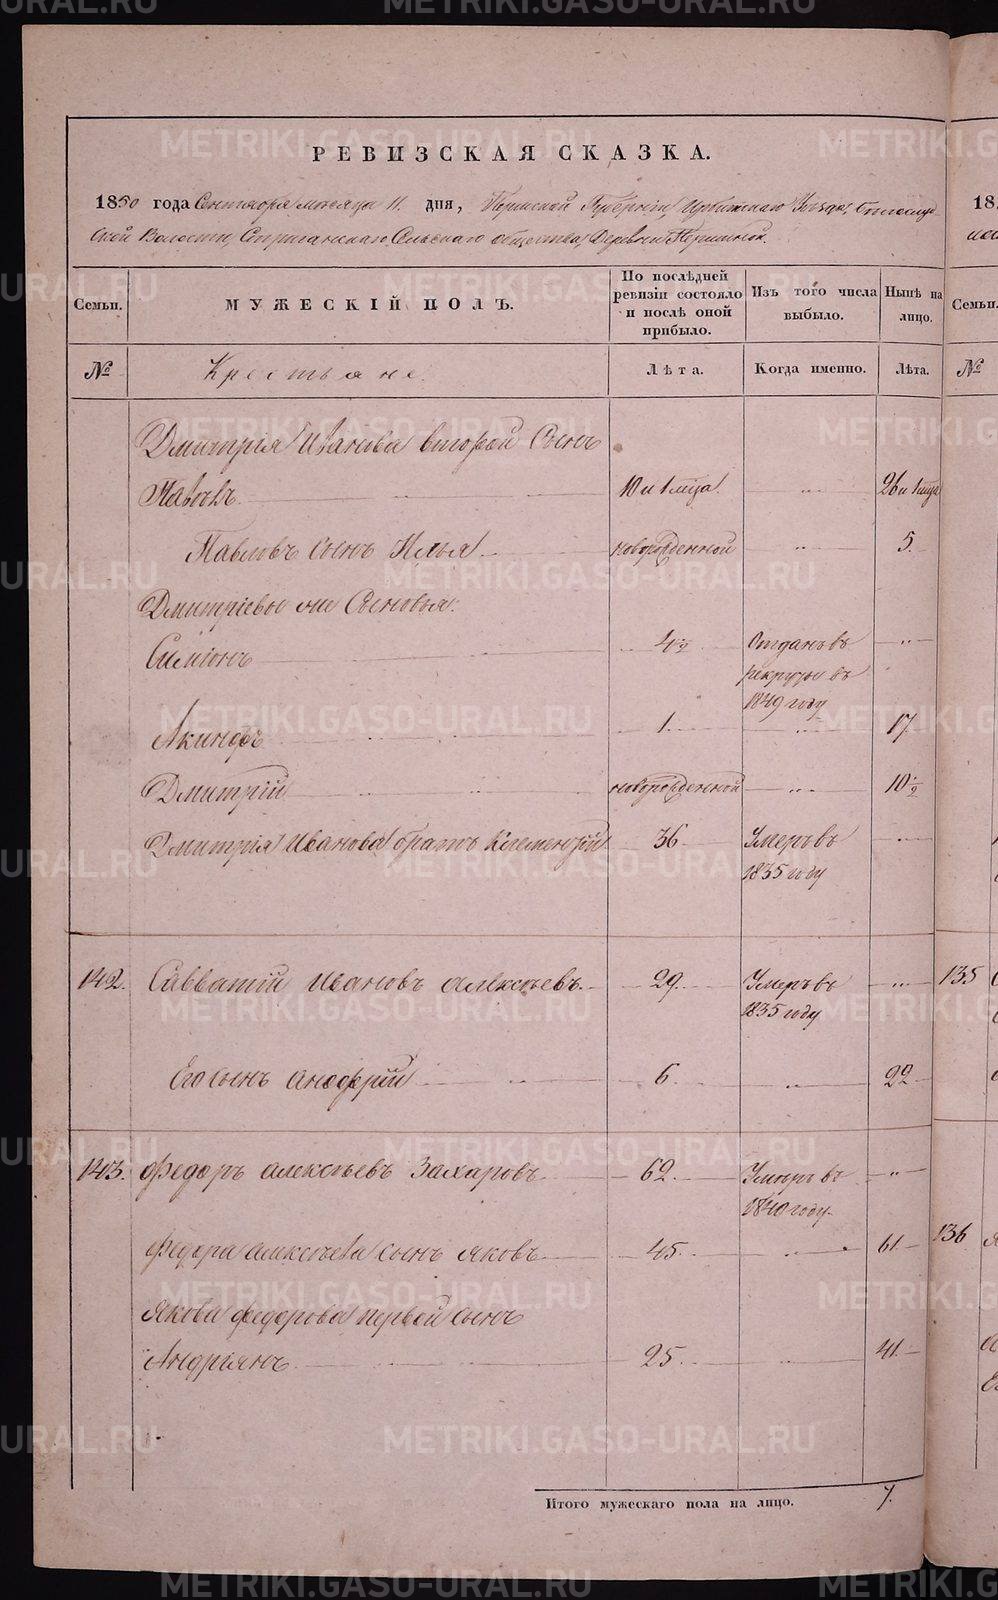 РЕВИЗСКАЯ СКАЗКА.
1850 года Сентября месяца 11. дня, Пермской Губернии, Ирбитского Уезда,
ской Волости, Сельскаго общества, Деревни Першиной.
Семьи. МУЖЕСКІЙ ПОЛЪ. По послѣдней ревизіи состояло и послѣ оной прибыло. Изъ того числа выбыло. Нынѣ на лицо.
№ Крестьяне. Лѣта. Когда именно. Лѣта.
Дмитрія Иванова второй Сынъ
Павелъ 10 и 1 мѣца. 26 и 1 мца
Павловъ сынъ Илья новорожденной 5.
Дмитріевы же Сыновья:
Симіонъ 4 1/2 Отданъ въ
рекруты въ
1849 году
Акинфъ 1. 17
Дмитрій новорожденной 10 1/2
Дмитрія Иванова братъ Климентій 36 Умеръ въ
1835 году
142. Савватій Ивановъ Алексѣевъ 29. Умеръ въ
1835 году
Его сынъ Анофрій 6. 22
143. Федоръ Алексѣевъ Захаровъ 62. Умеръ въ
1840 году.
Федора Алексѣева сынъ Яковъ 45. 61
Якова Федорова первой сынъ
Андріянъ 25. 41
Итого мужескаго пола на лицо. 7.
18
Семьи.
№
135
136
METRIKI.GASO-URAL.RU